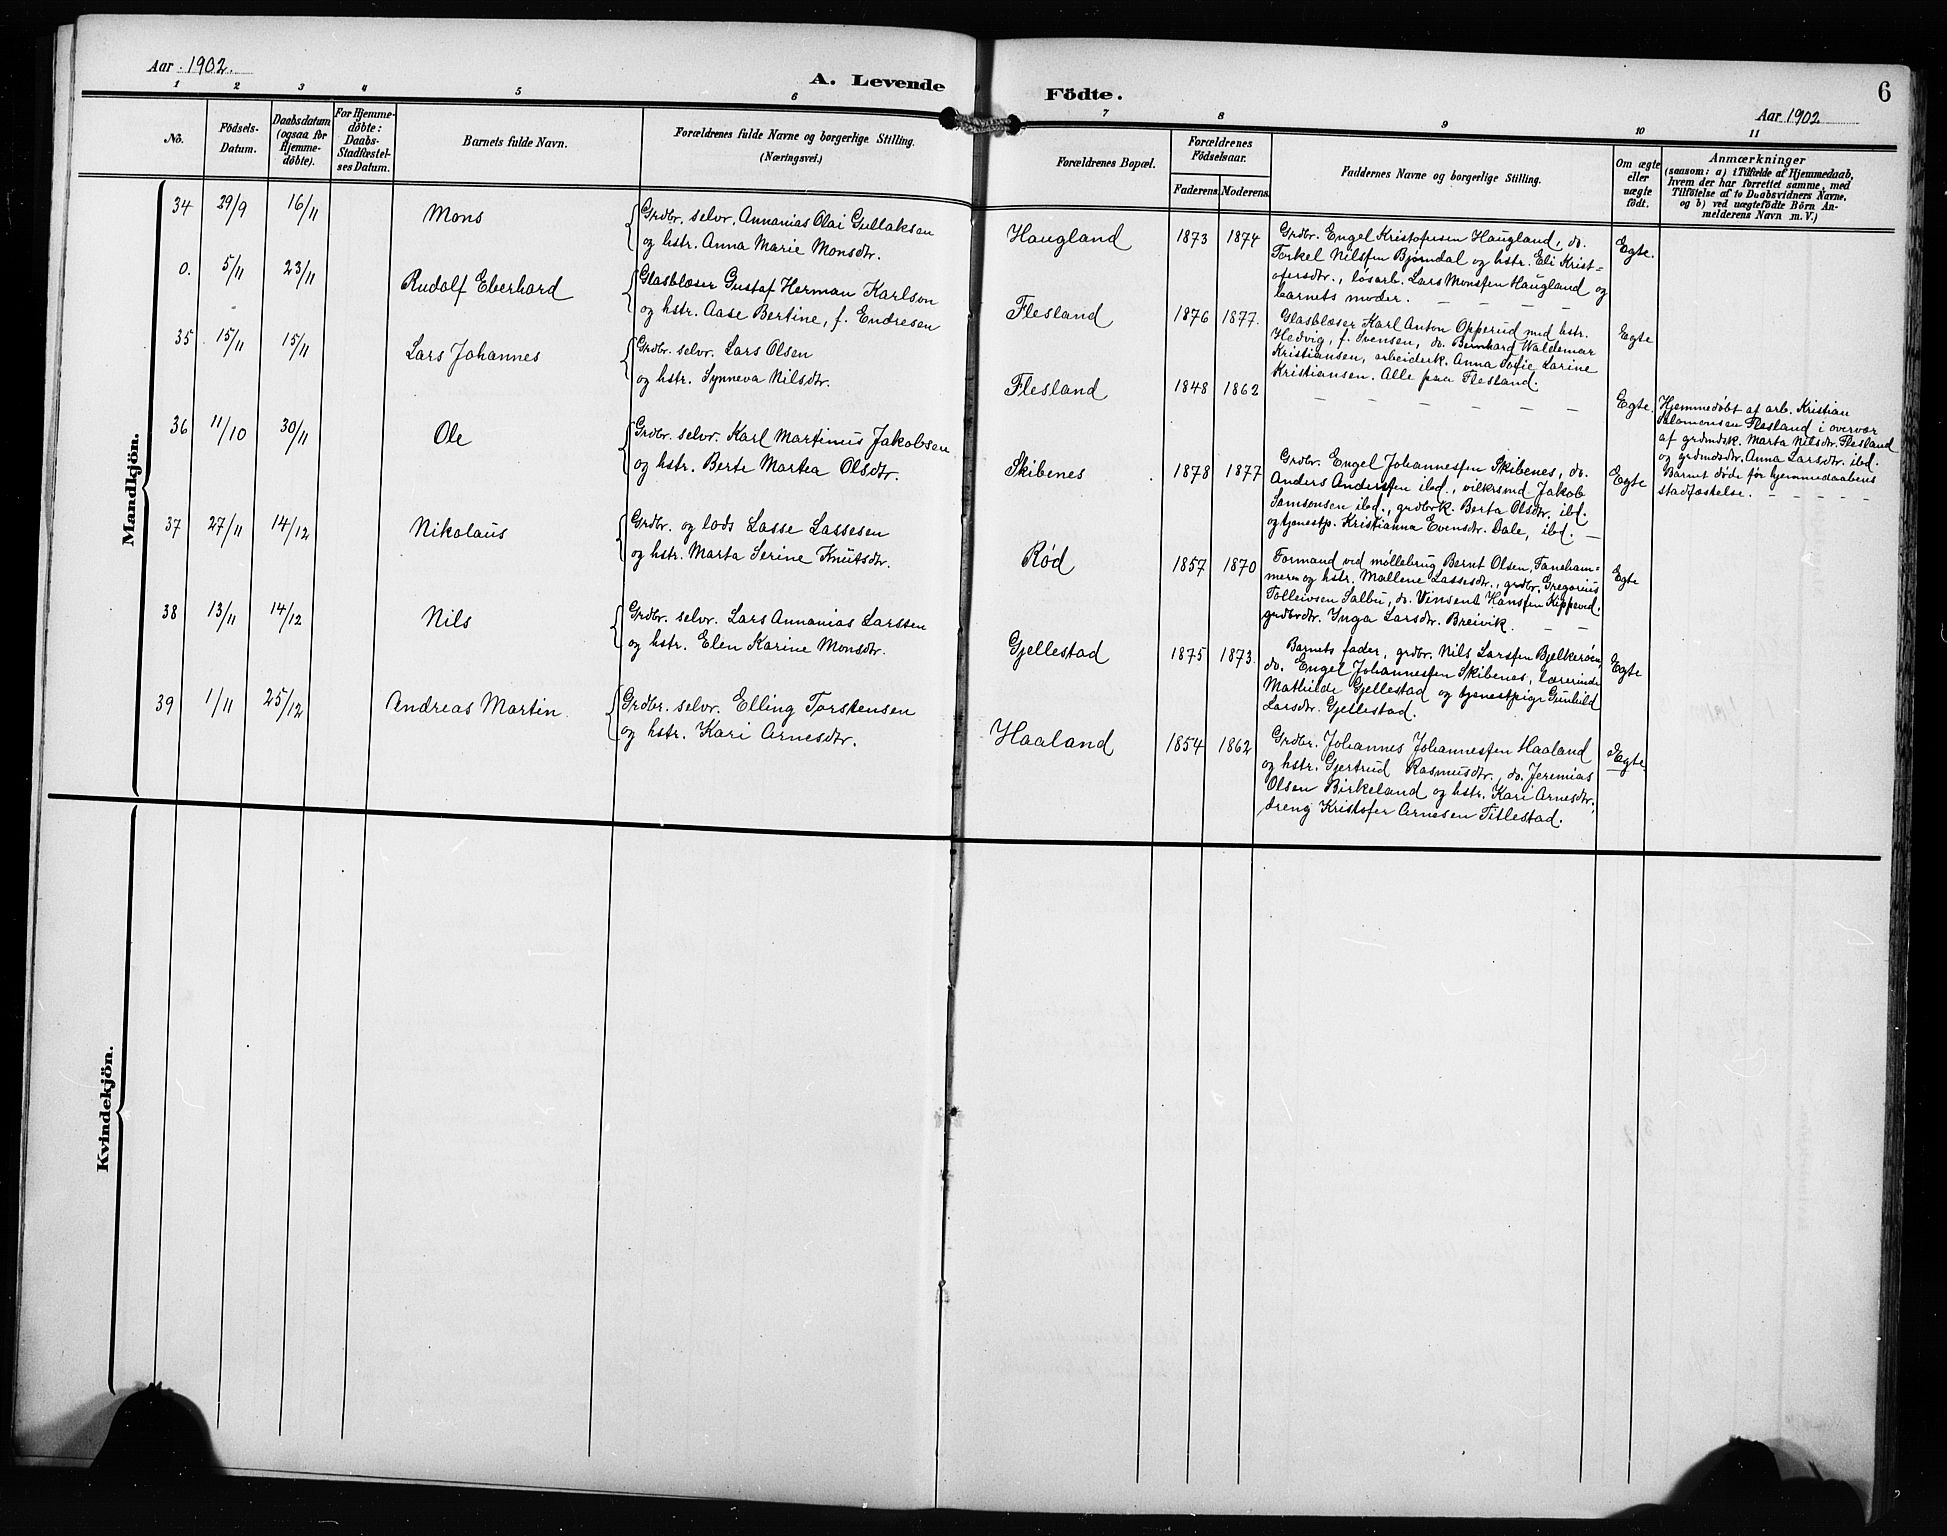 Aar 1902.
A. Levende Födte.
6
Aar 1902
1 2 3 4 5 6 7 8 9 10 11
No.
Födsels-Datum.
Daabsdatum (ogsaa for Hjemme-döbte).
For Hjemme-døbte: Daabs-Stadfæstel-ses Datum.
Barnets fulde Navn.
Forældrenes fulde Navne og borgerlige Stilling.
(Næringsvei.)
Forældrenes Bopæl.
Forældrenes Födselsaar.
Faderens. Moderens.
Faddernes Navne og borgerlige Stilling.
Om ægte eller uægte födt.
Anmærkninger
(saasom: a) i Tilfælde af Hjemmedaab,
hvem der har forrettet samme, med
Tilföielse af to Daabsvidners Navne,
og b) ved uægtefödte Börn An-
melderens Navn m. V.)
Mandkjön.
34 29/9 16/11 Mons
Grdbr. selvr. Annanias Olai Gullaksen
og hstr. Anna Marie Monsdtr.
Haugland 1873 1874
Grdbr. Engel Kristofersen Haugland, do.
Torkel Nilssen Bjørndal og hstr. Eli Krist=
ofersdtr., løsarb. Lars Monssen Haugland og
barnets moder. — — —
Egte.
0. 5/11 23/11 Rudolf Eberhard
Glasblæser Gustaf Herman Karlson
og hstr. Aase Bertine, f. Endresen
Flesland 1876 1877.
Glasblæser Karl Anton Opperud med hstr.
Hedvig, f. Svensen, do. Bernhard Waldemar
Kristiansen, arbeidersk. Anna Sofie Larine
Kristiansen. Alle paa Flesland.
Egte
35 15/11 15/11 Lars Johannes
Grdbr. selvr. Lars Olsen
og hstr. Synneva Nilsdtr.
Flesland 1848 1862
— — — — — — —
Egte.
Hjemmedøbt af arb. Kristian
Salomonsen Flesland i overvær
af grdmdsk. Marta Nilsdtr. Flesland
og grdmdsdtr. Anna Larsdtr. ibd.
Barnet døde før hjemmedaabens
stadfæstelse. — — — — —
36 11/10 30/11 Ole
Grdbr. selvr. Karl Martinus Jakobsen
og hstr. Berte Martea Olsdtr.
Skibenes 1878 1877
Grdbr. Engel Johannessen Skibenes, do.
Anders Anderssen ibd., vilkrsmd Jakob
Samsonsen ibd., grdbrk. Berta Olsdtr. ibd.
og tjenestp. Kristianna Evensdtr. Dale, ibd. —
Egte
37 27/11 14/12 Nikolaus
Grdbr. og lods Lasse Lassesen
og hstr. Marta Serine Knutsdtr.
Rød 1857 1870
Formand ved møllebrug Bernt Olsen, Faneham-
meren og hstr. Mallene Lassesdtr., grdbr. Gregorius
Tolleivsen Salbu, do. Vinsent Hanssen Kippevid,
grdbrdtr. Inga Larsdtr. Breivik. — —
Egte
38 13/11 14/12 Nils
Grdbr. selvr. Lars Annanias Larssen
og hstr. Elen Karine Monsdtr.
Gjellestad 1875 1873.
Barnets fader, grdbr. Nils Larssen Bjelkerøen,
do. Engel Johannessen Skibenes, lærerinde
Mathilde Gjellestad og tjenestpige Gunhild
Larsdtr. Gjellestad.
Egte
39 1/11 25/12 Andreas Martin.
Grdbr. selvr. Elling Torstensen
og hstr. Kari Arnesdtr.
Haaland 1854 1862
Grdbr. Johannes Johannessen Haaland
og hstr. Gjertrud Rasmusdtr., do. Jeremias
Olsen Birkeland og hstr. Kari Arnesdtr.
dreng Kristofer Arnesen Titlestad.
Egte.
Kvindekjön.